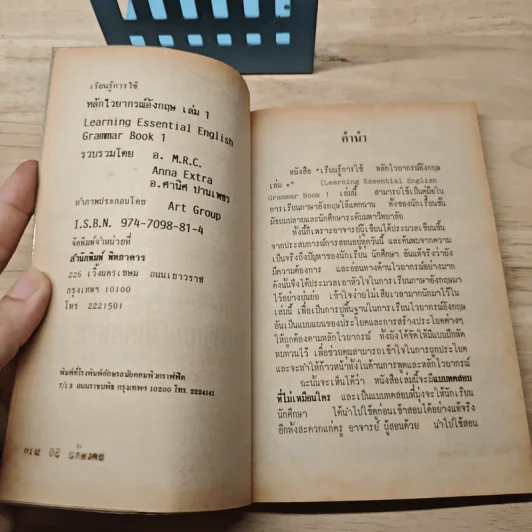 เรียนรู้การใช้
หลักไวยากรณ์อังกฤษ เล่ม 1
Learning Essential English
Grammar Book 1
รวบรวมโดย อ. M.R.C.
Anna Extra
อ.ศานิศ ปานเพชร
ทำภาพประกอบโดย Art Group
I.S.B.N. 974-7098-81-4
จัดพิมพ์จำหน่ายที่
สำนักพิมพ์ พิทยาคาร
226 เวิ้งนครเขษม ถนนเยาวราช
กรุงเทพฯ 10100
โทร 2221501
พิมพ์ที่โรงพิมพ์อักษรสมัยคอมพิวกราฟฟิค
ถนนราชบพิธ กรุงเทพฯ 10200 โทร. 2224141
คำนำ
หนังสือ "เรียนรู้การใช้ หลักไวยากรณ์อังกฤษ
เล่ม ๑" (Learning Essential English
Grammar Book 1 เล่มนี้ สามารถใช้เป็นคู่มือใน
การเรียนภาษาอังกฤษให้แตกฉาน ทั้งของนักเรียนชั้น
มัธยมปลายและนักศึกษาระดับมหาวิทยาลัย
ทั้งนี้ก็เพราะอาจารย์ผู้เขียนได้ประมวลเขียนขึ้น
จากประสบการณ์การสอนอยู่ทุกวันนี้ และค้นพบจากความ
เป็นจริงถึงปัญหาของนักเรียน นักศึกษา อันแท้จริงว่ายัง
มีความต้องการ และอ่อนทางด้านไวยากรณ์อย่างมาก
ดังนั้นจึงได้ประมวลเอาหัวใจในการเรียนภาษาอังกฤษมา
ไว้อย่างย่นย่อ เข้าใจง่ายไม่เสียเวลามากนักมาไว้ใน
เล่มนี้ เพื่อเป็นการปูพื้นฐานในการเรียนไวยากรณ์อังกฤษ
อันเป็นแบบแผนของประโยคและการสร้างประโยคต่างๆ
ให้ถูกต้องตามหลักไวยากรณ์ ทั้งยังได้จัดให้มีแบบฝึกหัด
ทบทวนไว้ เพื่อช่วยคุณสามารถเข้าใจในการผูกประโยค
และจะทำให้ก้าวหน้าทั้งในด้านการพูดและหลักไวยากรณ์
ฉะนั้นจะเห็นได้ว่า หนังสือเล่มนี้จะมีแบบทดสอบ
ที่ไม่เหมือนใคร และเป็นแบบทดสอบที่มุ่งจะให้นักเรียน
นักศึกษา ได้นำไปใช้ดูก่อนเข้าสอบได้อย่างแท้จริง
อีกทั้งสะดวกแก่ครู อาจารย์ ผู้สอนด้วย นำไปใช้สอน